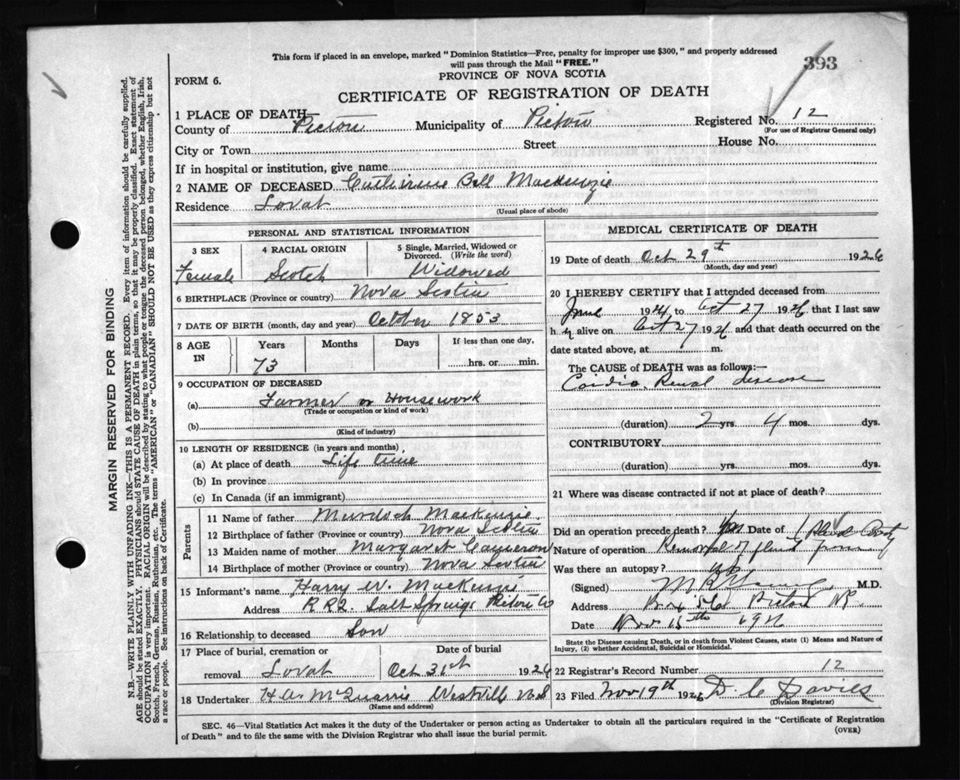 This form if placed in an envelope, marked "Dominion Statistics—Free, penalty for improper use $300," and properly addressed
will pass through the Mail "FREE."
393
PROVINCE OF NOVA SCOTIA
FORM 6.
CERTIFICATE OF REGISTRATION OF DEATH
1 PLACE OF DEATH
County of Pictou Municipality of Pictou Registered No. 12
(For use of Registrar General only)
City or Town Street House No.
If in hospital or institution, give name
2 NAME OF DECEASED Catherine Bell Mackenzie
Residence Lovat
(Usual place of abode)
PERSONAL AND STATISTICAL INFORMATION
3 SEX 4 RACIAL ORIGIN 5 Single, Married, Widowed or
Divorced. (Write the word)
Female Scotch Widowed
6 BIRTHPLACE (Province or country) Nova Scotia
7 DATE OF BIRTH (month, day and year) October 1853
8 AGE IN Years Months Days If less than one day,
73 hrs. or min.
9 OCCUPATION OF DECEASED
(a) Farmer or Housework
(Trade or occupation or kind of work)
(b)
(Kind of industry)
10 LENGTH OF RESIDENCE (in years and months)
(a) At place of death Life time
(b) In province
(c) In Canada (if an immigrant)
Parents
11 Name of father Murdoch Mackenzie
12 Birthplace of father (Province or country) Nova Scotia
13 Maiden name of mother Margaret Cameron
14 Birthplace of mother (Province or country) Nova Scotia
15 Informant's name Harry W. MacKenzie
Address R R 2. Salt Springs Pictou Co
16 Relationship to deceased Son
17 Place of burial, cremation or Date of burial
removal Lovat Oct 31st 1926
18 Undertaker H.A. McQuarrie Westville
(Name and address)
MEDICAL CERTIFICATE OF DEATH
19 Date of death Oct 29th 1926
(Month, day and year)
20 I HEREBY CERTIFY that I attended deceased from
June 1924 to Oct 27 1926 that I last saw
h er alive on Oct 27 1926 and that death occurred on the
date stated above, at m.
The CAUSE of DEATH was as follows:—
Cardio Renal disease
(duration) 2 yrs. 4 mos. dys.
CONTRIBUTORY
(duration) yrs. mos. dys.
21 Where was disease contracted if not at place of death?
Did an operation precede death? Yes Date of
Nature of operation Removal of fluid from
Was there an autopsy?
(Signed) M.D.
Address Pictou
Date Nov 15th 1926
State the Disease causing Death, or in death from Violent Causes, state (1) Means and Nature of
Injury, (2) whether Accidental, Suicidal or Homicidal.
22 Registrar's Record Number 12
23 Filed Nov 19th 1926 D. C Davies
(Division Registrar)
SEC. 46—Vital Statistics Act makes it the duty of the Undertaker or person acting as Undertaker to obtain all the particulars required in the "Certificate of Registration
of Death" and to file the same with the Division Registrar who shall issue the burial permit. (OVER)
MARGIN RESERVED FOR BINDING
N.B.—WRITE PLAINLY WITH UNFADING INK—THIS IS A PERMANENT RECORD. Every item of information should be carefully supplied.
AGE should be stated EXACTLY. PHYSICIANS should STATE CAUSE OF DEATH in plain terms, so that it may be properly classified. Exact statement of
OCCUPATION is very important. RACIAL ORIGIN will be described by stating to what people or tongue the deceased person belonged, whether English, Irish,
Scotch, French, German, Russian, Ruthenian, etc. The terms "AMERICAN" or "CANADIAN" SHOULD NOT BE USED as they express citizenship but not
a race or people. See instructions on back of Certificate.